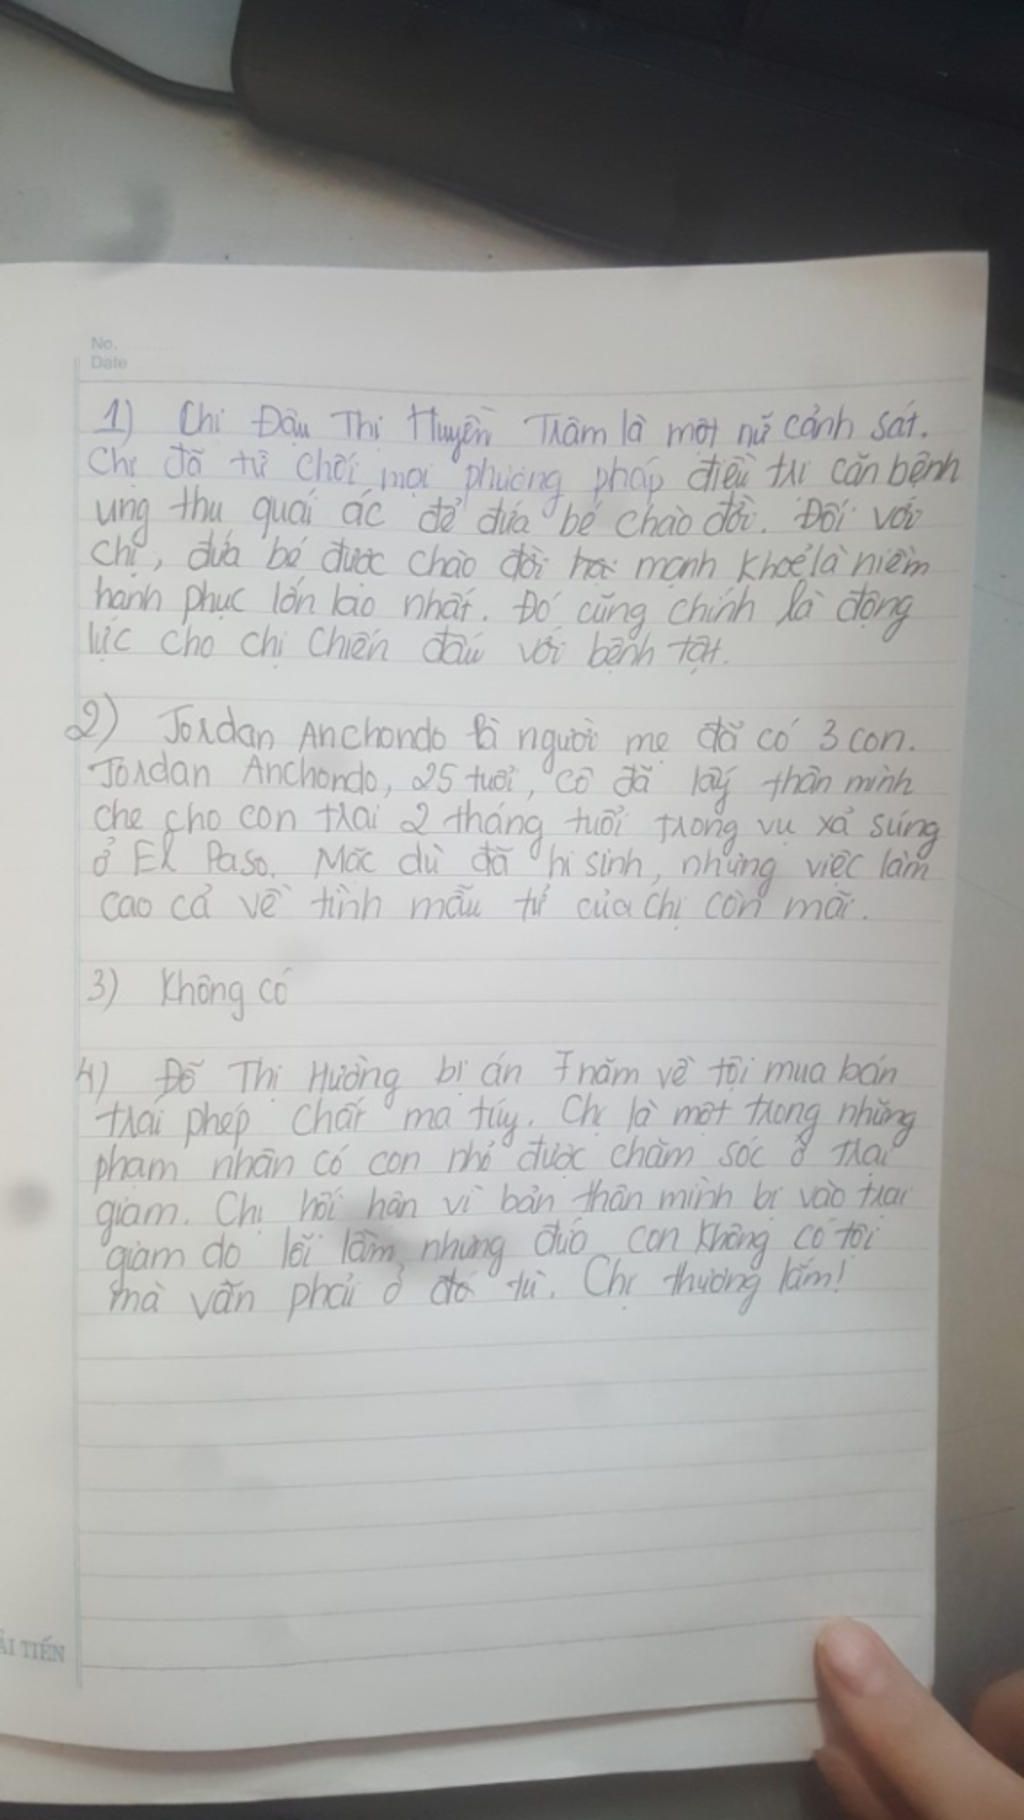 No.
Date
1) Chị Đậu Thị Huyền Trâm là một nữ cảnh sát.
Chị đã từ chối mọi phương pháp điều trị căn bệnh
ung thư quái ác để đứa bé chào đời. Đối với
chị, đứa bé được chào đời mạnh khoẻ là niềm
hạnh phục lớn lao nhất. Đó cũng chính là động
lực cho chị chiến đấu với bệnh tật.
2) Jordan Anchondo là người mẹ đã có 3 con.
Jordan Anchondo, 25 tuổi, cô đã lấy thân mình
che cho con trai 2 tháng tuổi trong vụ xả súng
ở El Paso. Mặc dù đã hi sinh, nhưng việc làm
cao cả về tình mẫu tử của chị còn mãi.
3) Không có
4) Đỗ Thị Hường bị án 7 năm về tội mua bán
trái phép chất ma túy. Chị là một trong những
phạm nhân có con nhỏ được chăm sóc ở trại
giam. Chị hối hận vì bản thân mình bị vào trại
giam do lỗi lầm, nhưng đứa con không có tội
mà vẫn phải ở tù. Chị thương lắm!
ẢI TIẾN